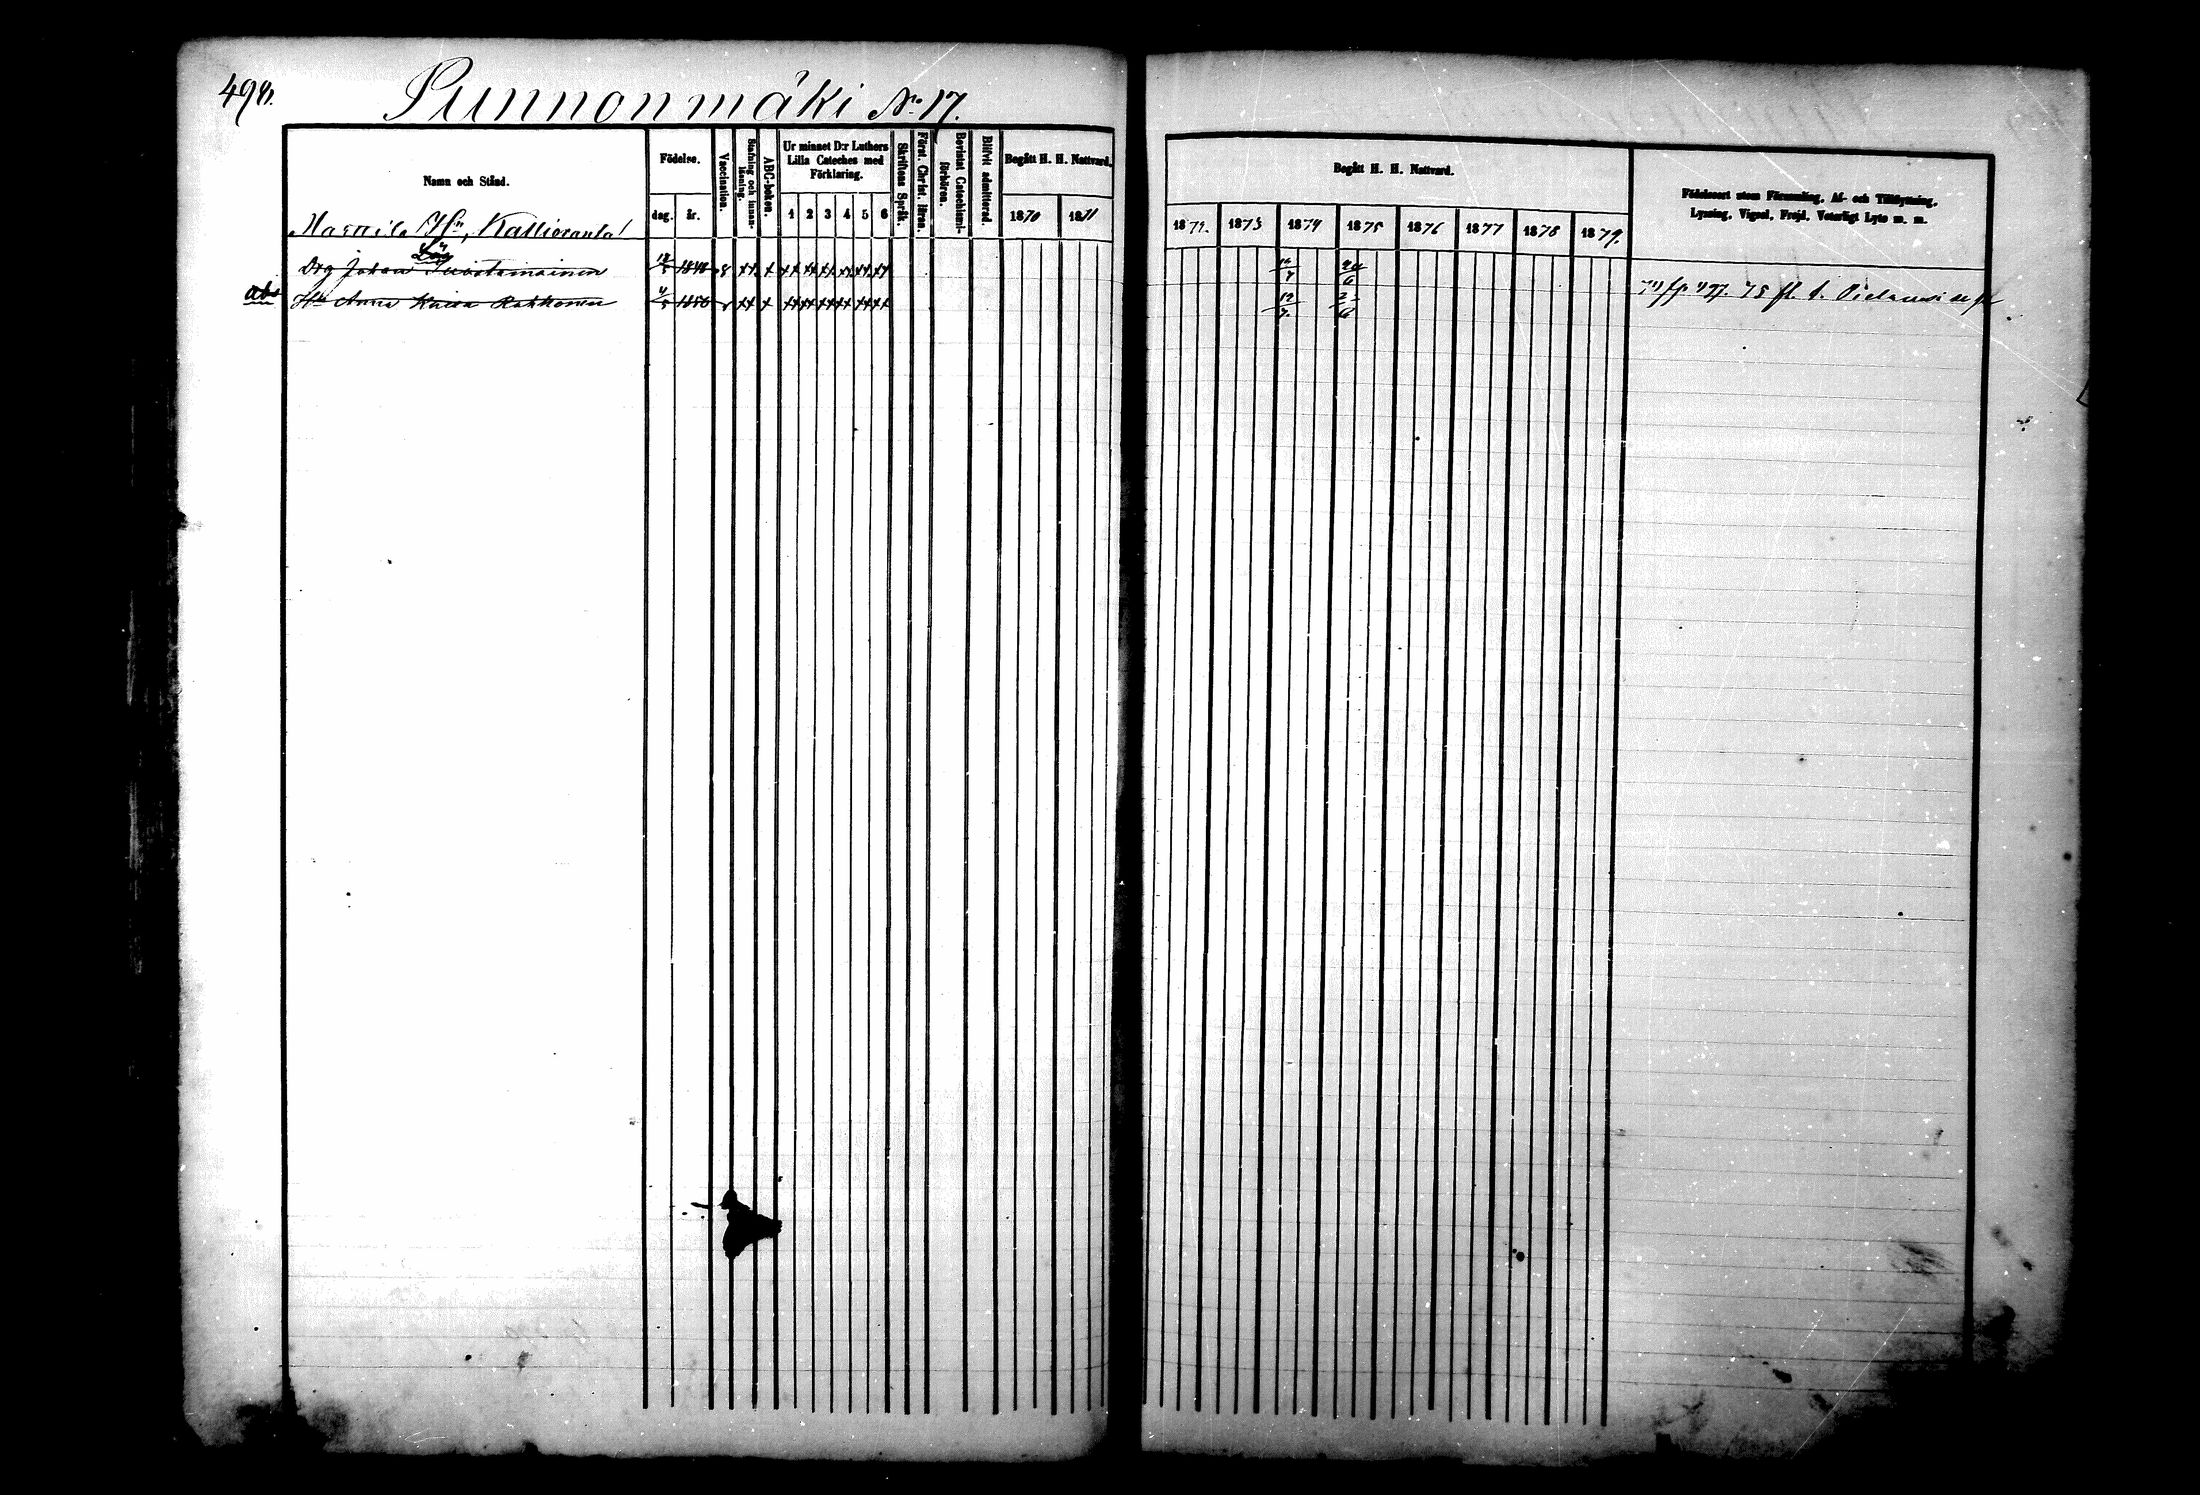 498.
Punnonmäki No 17.
Namn och Stånd.
Födelse.
dag. år.
Vaccination.
Stafning och innanläsning.
ABC-boken.
Ur minnet D:r Luthers
Lilla Cateches med
Förklaring.
1 2 3 4 5 6
Skriftens Språk.
Först. Christ. läran.
Bevistat Catechismi-
förhören.
Blifvit admitterad.
Begått H. H. Nattvard.
1870 1871
Kallioranta
Drg Johan
Hu Anna Kaisa Rakkonen
Begått H. H. Nattvard.
1872. 1873 1874 1875 1876 1877 1878 1879.
Födelseort utom Församling, Af- och Tillflyttning,
Lysning, Vigsel, Frejd, Veterligt Lyte m. m.
75 fl. t. Pielavesi